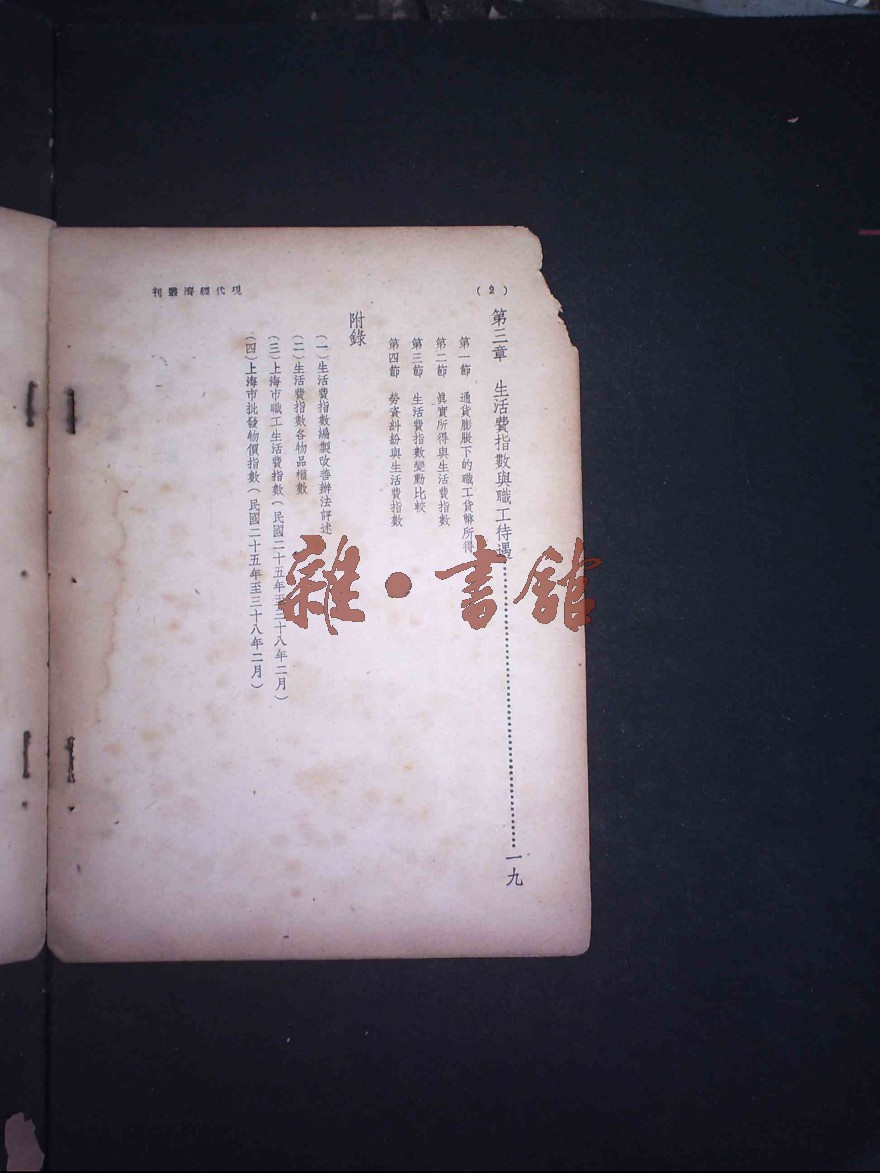 (2)
現代經濟叢刊
第三章 生活費指數與職工待遇……一九
第一節 通貨膨脹下的職工貨幣所得
第二節 眞實所得與生活費指數
第三節 生活費指數變動比較
第四節 勞資糾紛與生活費指數
附錄
(一)生活費指數編製改善辦法評述
(二)生活費指數各物品權數
(三)上海市職工生活費指數(民國二十五年至三十八年二月)
(四)上海市批發物價指數(民國二十五年至三十八年二月)
雜·書館